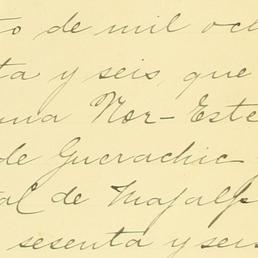 to de mil och
ta y seis, que
una Nor-Este
de Guerachic
tal de Majalp
sesenta y seis